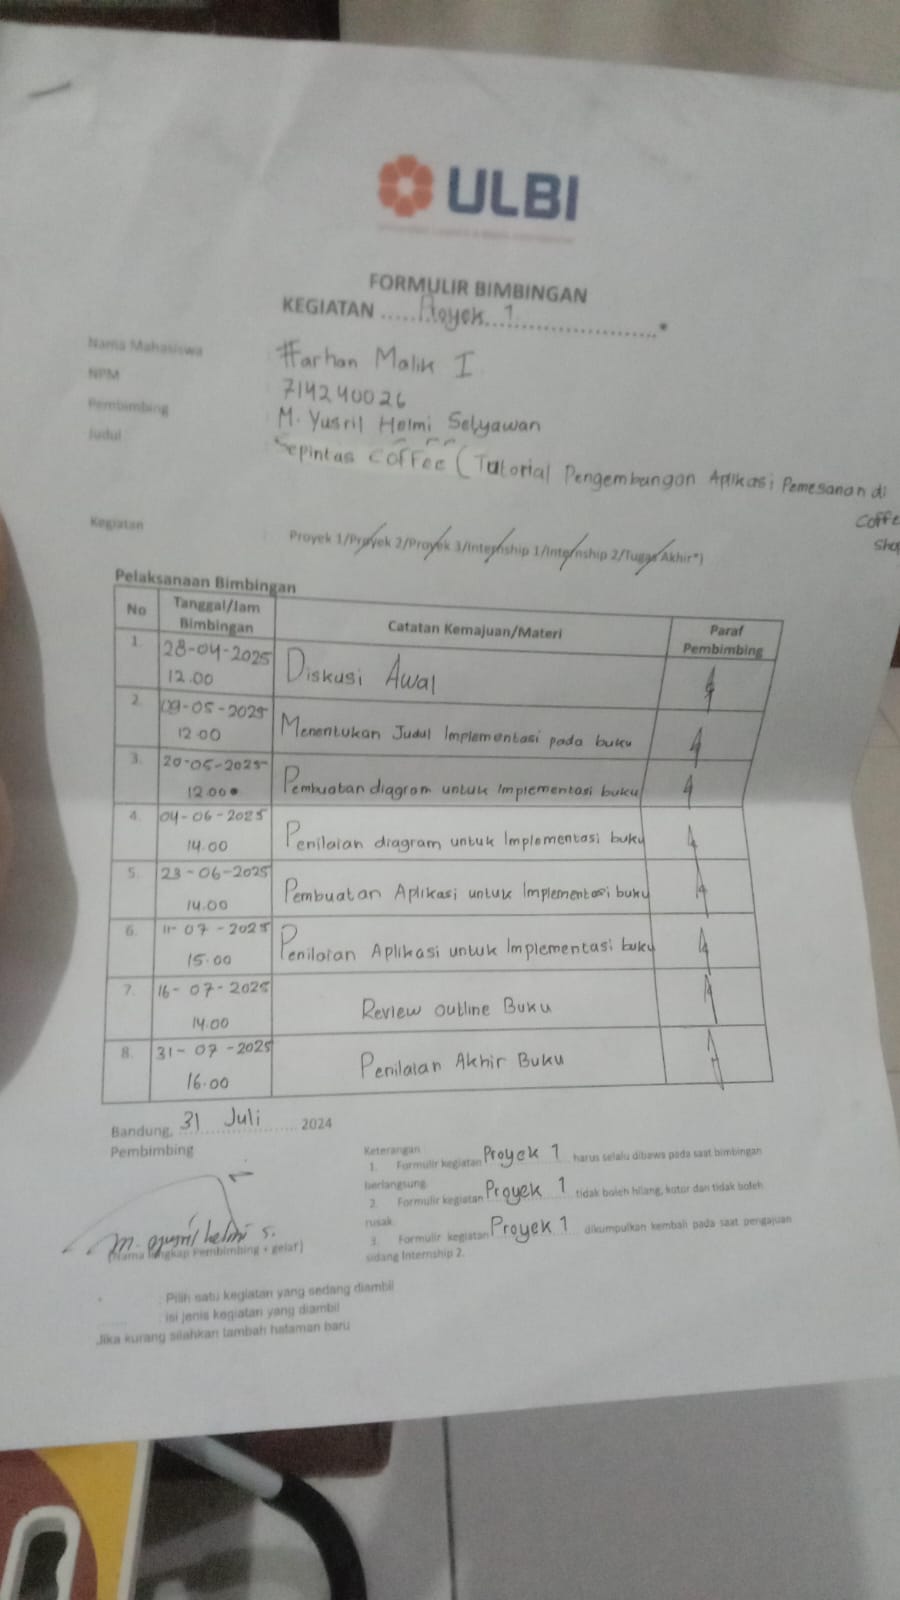 ULBI
FORMULIR BIMBINGAN
KEGIATAN ..... Proyek 1 ..................*
Nama Mahasiswa : Farhan Malik I
NPM : 714240026
Pembimbing : M. Yusril Helmi Setyawan
Judul : Sepintas Coffee (Tutorial Pengembangan Aplikasi Pemesanan di
Coffee
Shop
Kegiatan : Proyek 1/Proyek 2/Proyek 3/Internship 1/Internship 2/Tugas Akhir*)
Pelaksanaan Bimbingan
No Tanggal/Jam Bimbingan Catatan Kemajuan/Materi Paraf Pembimbing
1. 28-04-2025 12.00 Diskusi Awal
2. 09-05-2025 12.00 Menentukan Judul Implementasi pada buku
3. 20-05-2025 12.00 Pembuatan diagram untuk Implementasi buku
4. 04-06-2025 14.00 Penilaian diagram untuk Implementasi buku
5. 23-06-2025 14.00 Pembuatan Aplikasi untuk Implementasi buku
6. 11-07-2025 15.00 Penilaian Aplikasi untuk Implementasi buku
7. 16-07-2025 14.00 Review outline Buku
8. 31-07-2025 16.00 Penilaian Akhir Buku
Bandung, 31 Juli ........ 2024
Pembimbing
M. Yusril helmi s.
(Nama lengkap Pembimbing + gelar)
Keterangan
1. Formulir kegiatan Proyek 1 harus selalu dibawa pada saat bimbingan
berlangsung
2. Formulir kegiatan Proyek 1 tidak boleh hilang, kotor dan tidak boleh
rusak
3. Formulir kegiatan Proyek 1 dikumpulkan kembali pada saat pengajuan
sidang Internship 2.
* : Pilih satu kegiatan yang sedang diambil
...... : isi jenis kegiatan yang diambil
Jika kurang silahkan tambah halaman baru